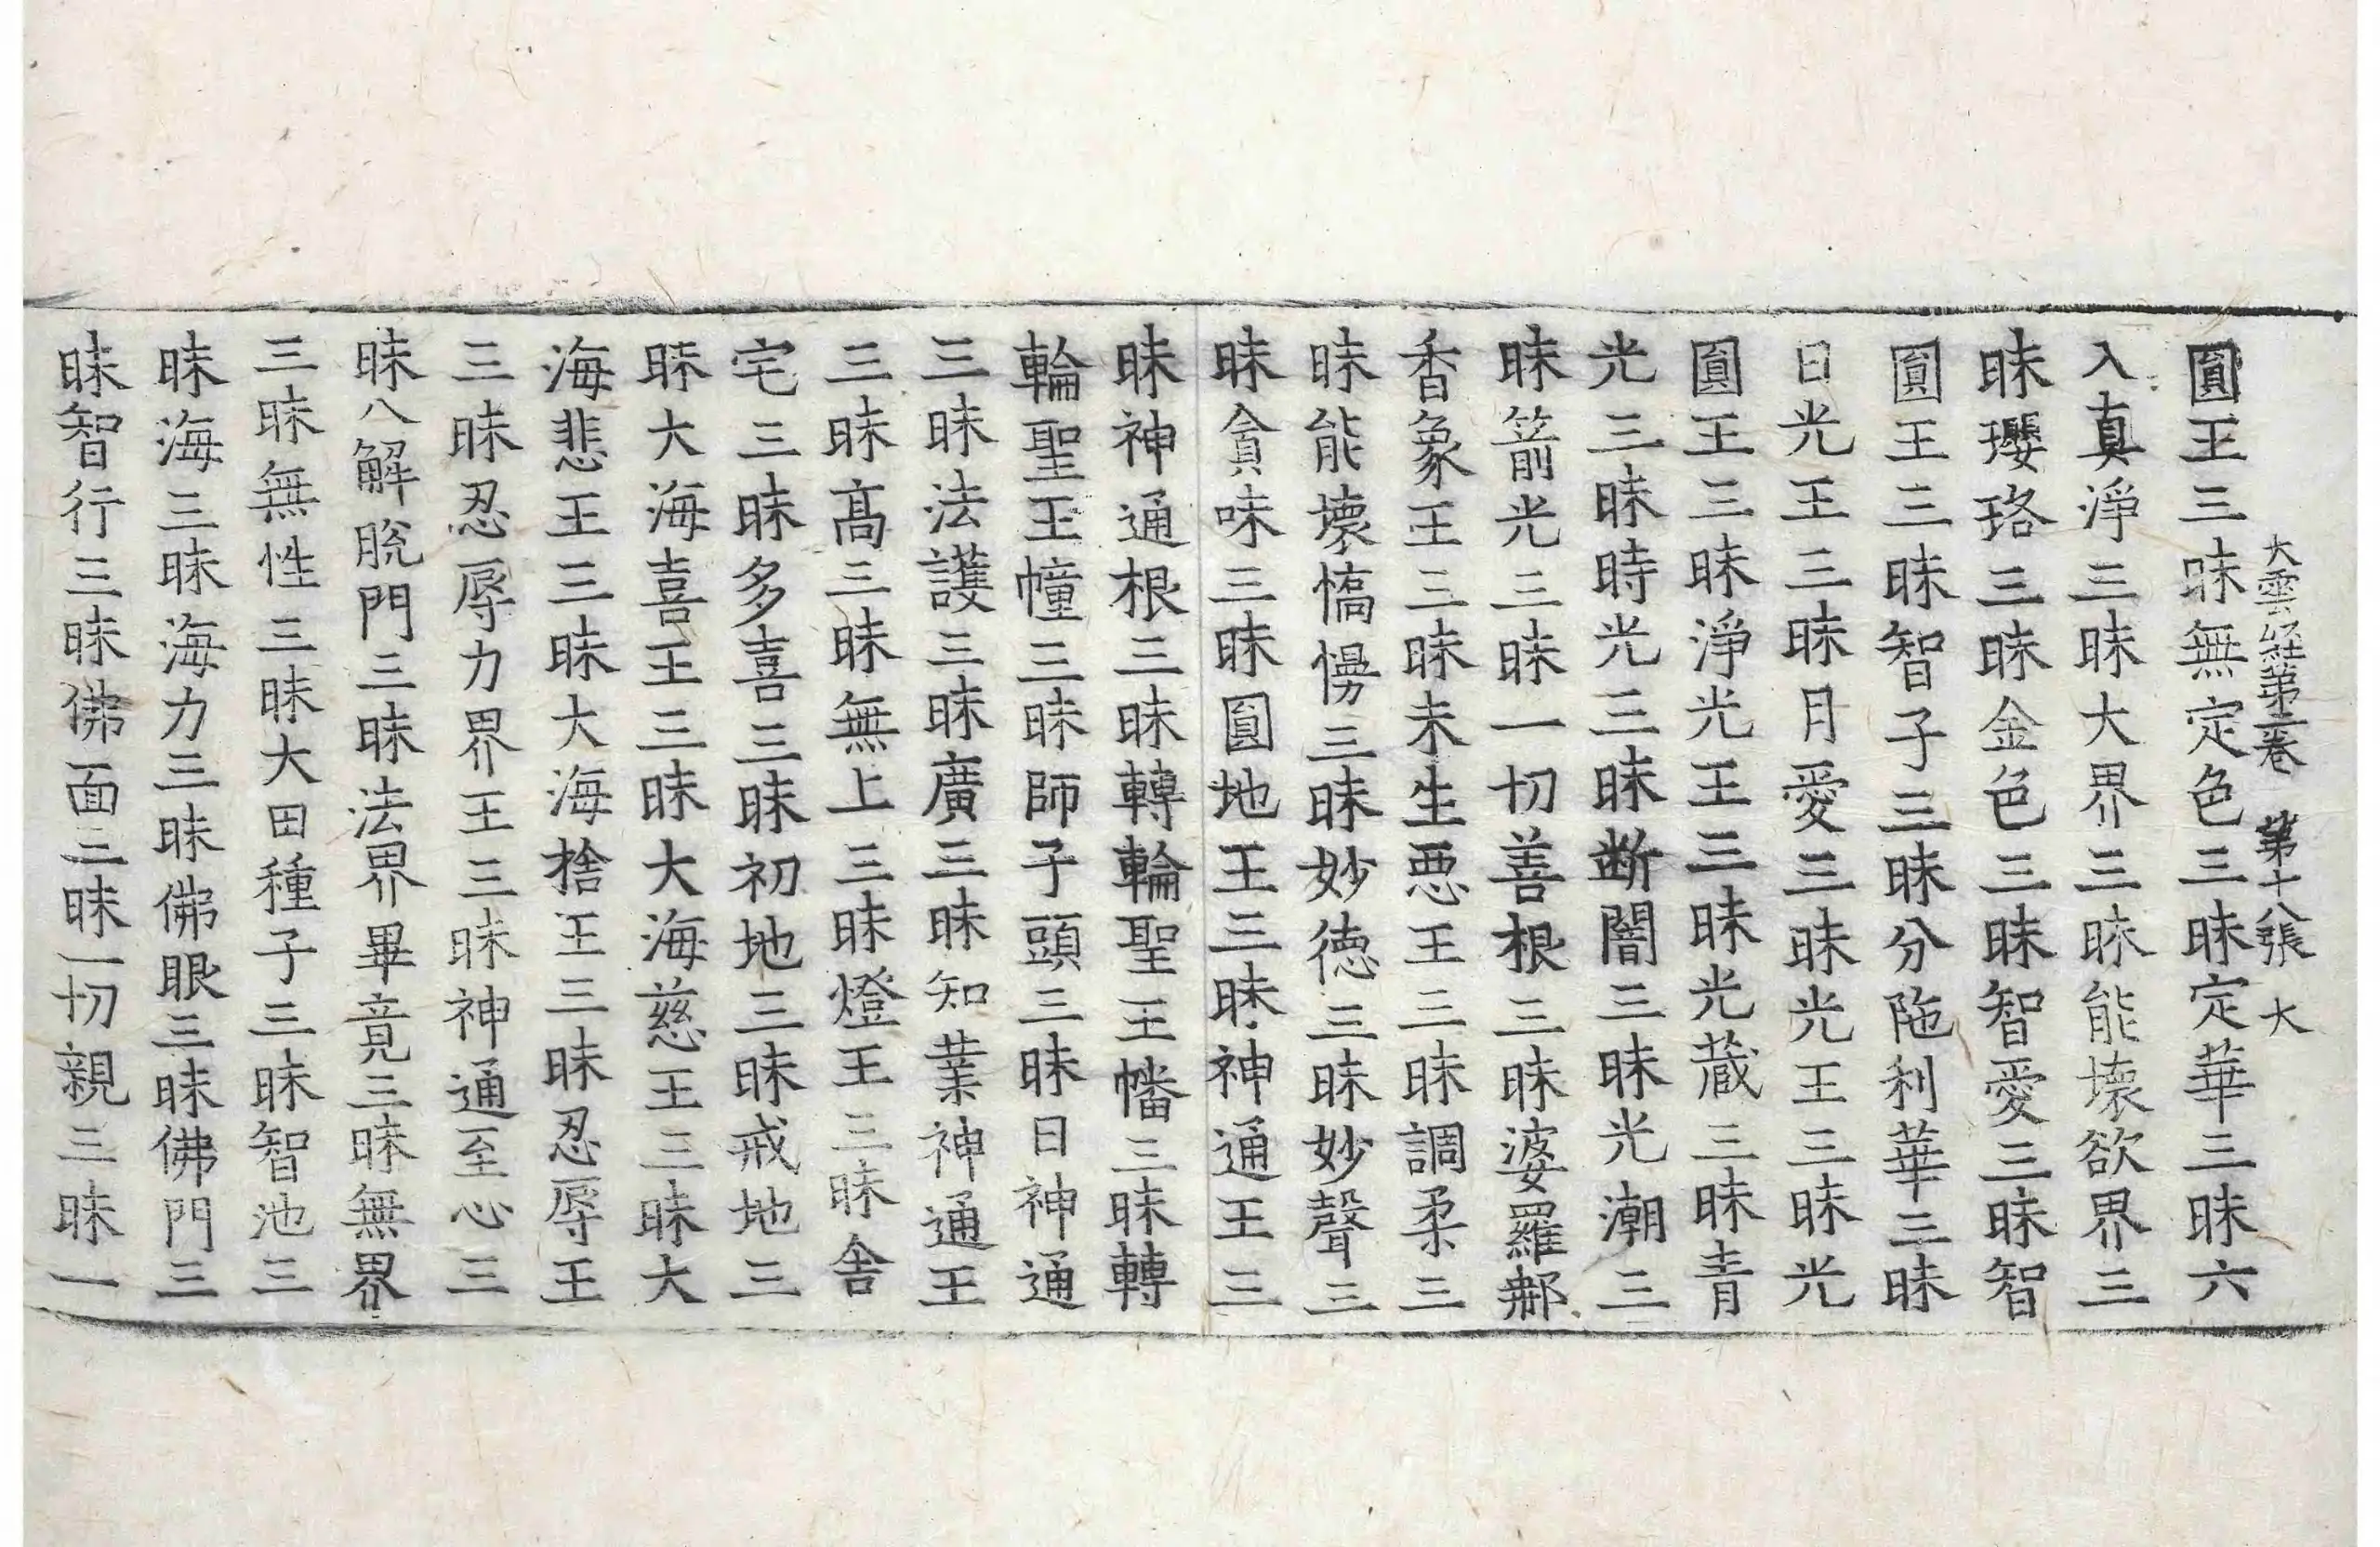 大雲経第二卷　第十八張　大
圓王三昧無定色三昧定華三昧六
入真淨三昧大界三昧能壞欲界三
昧瓔珞三昧金色三昧智愛三昧智
圓王三昧智子三昧分陁利華三昧
日光王三昧月愛三昧光王三昧光
圓王三昧淨光王三昧光蔵三昧青
光三昧時光三昧断闇三昧光潮三
昧箭光三昧一切善根三昧婆羅鄰
香象王三昧未生惡王三昧調柔三
昧能壞憍慢三昧妙徳三昧妙聲三
昧貪味三昧圓地王三昧神通王三
昧神通根三昧轉輪聖王幡三昧轉
輪聖王幢三昧師子頭三昧日神通
三昧法護三昧廣三昧知業神通王
三昧髙三昧無上三昧燈王三昧舍
宅三昧多喜三昧初地三昧戒地三
昧大海喜王三昧大海慈王三昧大
海悲王三昧大海捨王三昧忍辱王
三昧忍辱力界王三昧神通至心三
昧八解脫門三昧法界畢竟三昧無界
三昧無性三昧大田種子三昧智池三
昧海三昧海力三昧佛眼三昧佛門三
昧智行三昧佛面三昧一切親三昧一